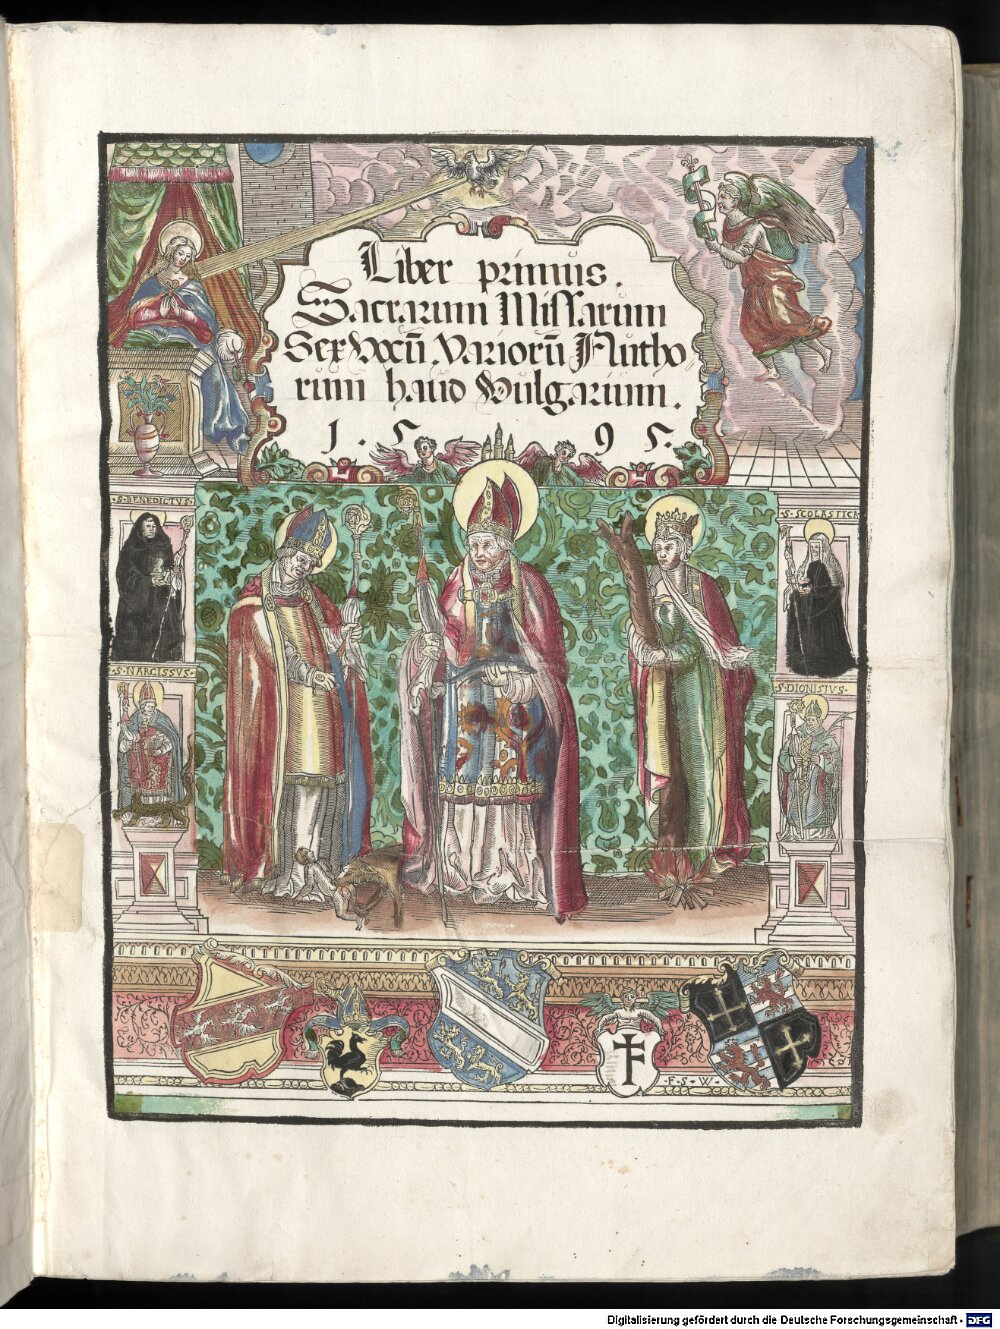 Liber primus.
Sacrarum Missarum
Sex Vocū Variorū Autho
rum haud Vulgarium.
1. 5 9 5.
· S · BENEDICTVS ·
· S · SCOLASTICA
· S · NARCISSVS ·
· S · DIONISIVS ·
· F · S · W ·
Digitalisierung gefördert durch die Deutsche Forschungsgemeinschaft - DFG